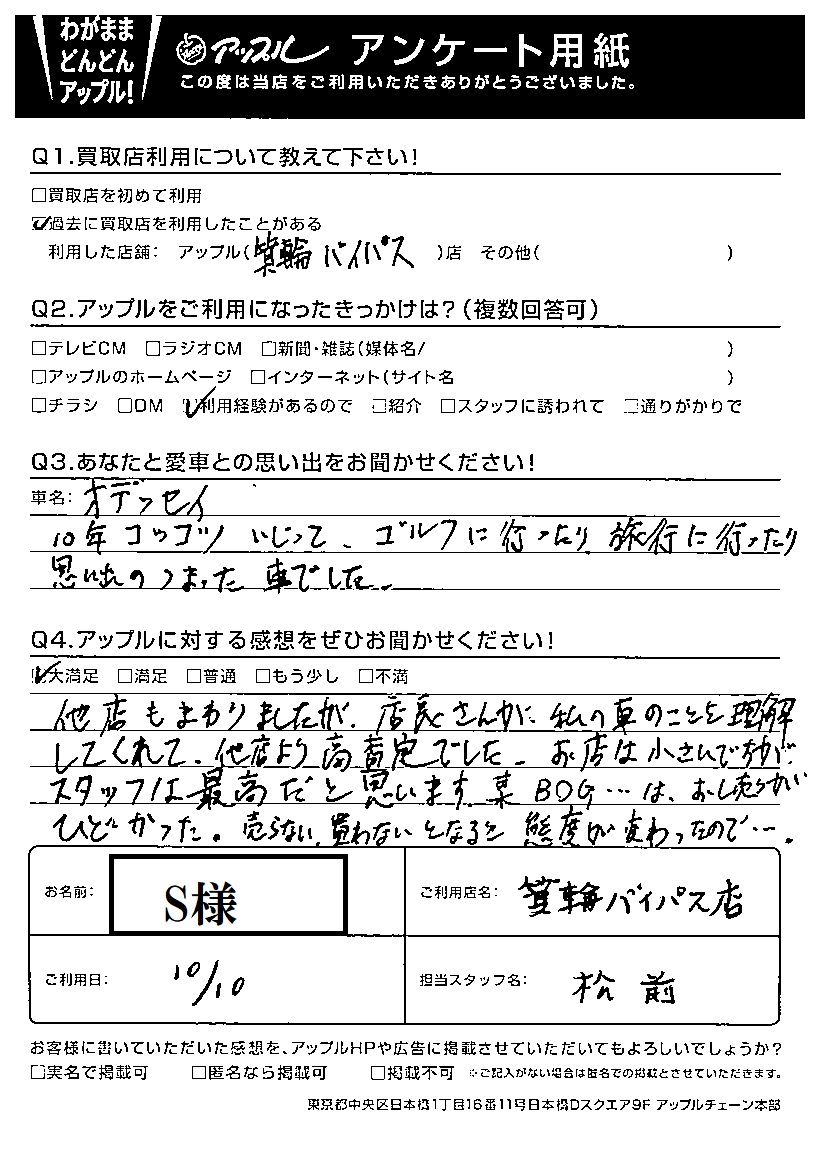 わがまま
どんどん
アップル!
アップル アンケート用紙
この度は当店をご利用いただきありがとうございました。
Q1.買取店利用について教えて下さい!
□買取店を初めて利用
☑過去に買取店を利用したことがある
利用した店舗: アップル(箕輪バイパス )店 その他( )
Q2.アップルをご利用になったきっかけは?(複数回答可)
□テレビCM □ラジオCM □新聞・雑誌(媒体名/ )
□アップルのホームページ □インターネット(サイト名 )
□チラシ □DM ☑利用経験があるので □紹介 □スタッフに誘われて □通りがかりで
Q3.あなたと愛車との思い出をお聞かせください!
車名: オデッセイ
10年コツコツいじって、ゴルフに行ったり、旅行に行ったり
思い出のつまった車でした。
Q4.アップルに対する感想をぜひお聞かせください!
☑大満足 □満足 □普通 □もう少し □不満
他店もまわりましたが、店長さんが、私の車のことを理解
してくれて、他店より高査定でした。お店は小さいですが、
スタッフは最高だと思います。某BOG…は、おし売りがい
ひどかった。売らない、買わないとなると態度が変わったので…。
お名前: S様
ご利用店名: 箕輪バイパス店
ご利用日: 10/10
担当スタッフ名: 松前
お客様に書いていただいた感想を、アップルHPや広告に掲載させていただいてもよろしいでしょうか?
□実名で掲載可 □匿名なら掲載可 □掲載不可 ※ご記入がない場合は匿名での掲載とさせていただきます。
東京都中央区日本橋1丁目16番11号日本橋Dスクエア9F アップルチェーン本部